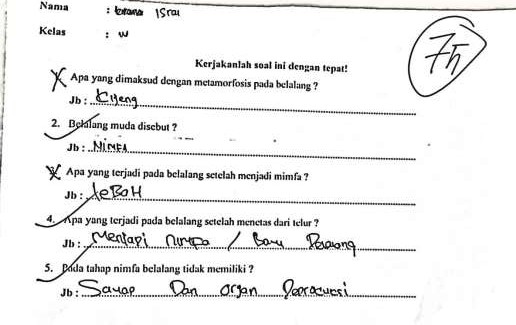 Nama : Israi
Kelas : IV
75
Kerjakanlah soal ini dengan tepat!
Apa yang dimaksud dengan metamorfosis pada belalang ?
Jb :
2. Belalang muda disebut ?
Jb : NiMFA
Apa yang terjadi pada belalang setelah menjadi mimfa ?
Jb :
4. Apa yang terjadi pada belalang setelah menetas dari telur ?
Jb : Mentapi / Baru
5. Pada tahap nimfa belalang tidak memiliki ?
Jb : Sayap Dan organ